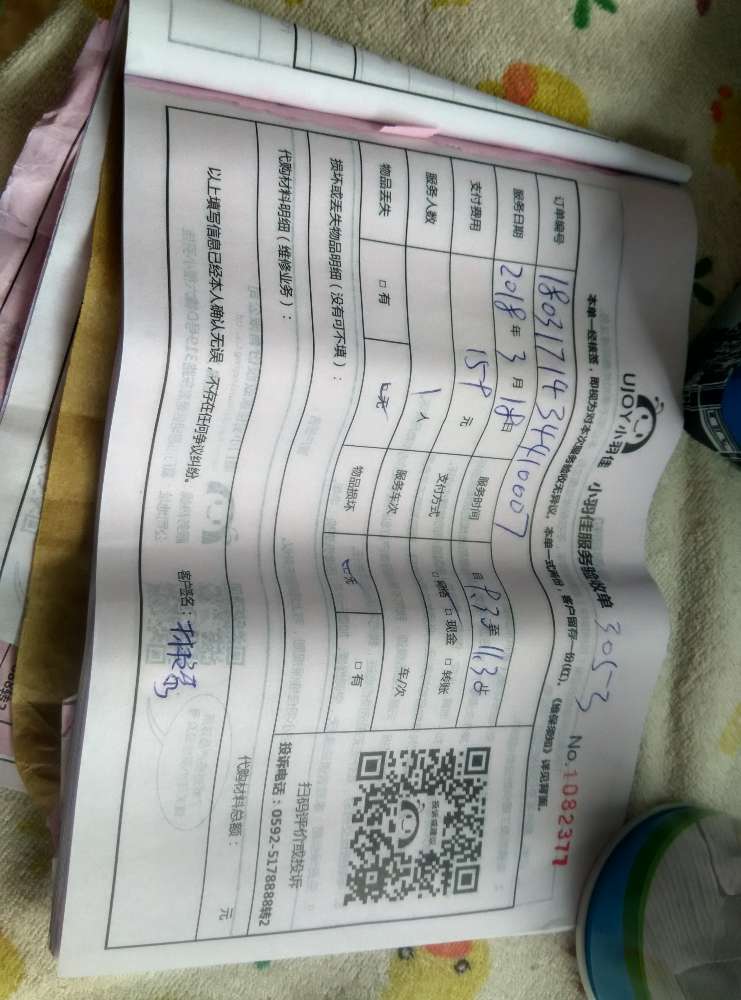 UJOY小羽佳 小羽佳服务验收单 3053 No.1082377
本单一经核签，即视为对本次服务验收无异议。本单一式两份，客户留存一份(红)。《维保须知》详见背面。
订单编号 18031714344410007
服务日期 2018年3月18日 服务时间 自 9.35至11.35
支付费用 159元 支付方式 □网络 □现金 □转账
服务人数 1人 服务车次 车/次
物品丢失 □有 □无 物品损坏 □无 □有
损坏或丢失物品明细（没有可不填）：
代购材料明细（维修业务）：
代购材料总额： 元
以上填写信息已经本人确认无误，不存在任何争议纠纷。
客户签名：
扫码评价或投诉
投诉电话：0592-5178888转2